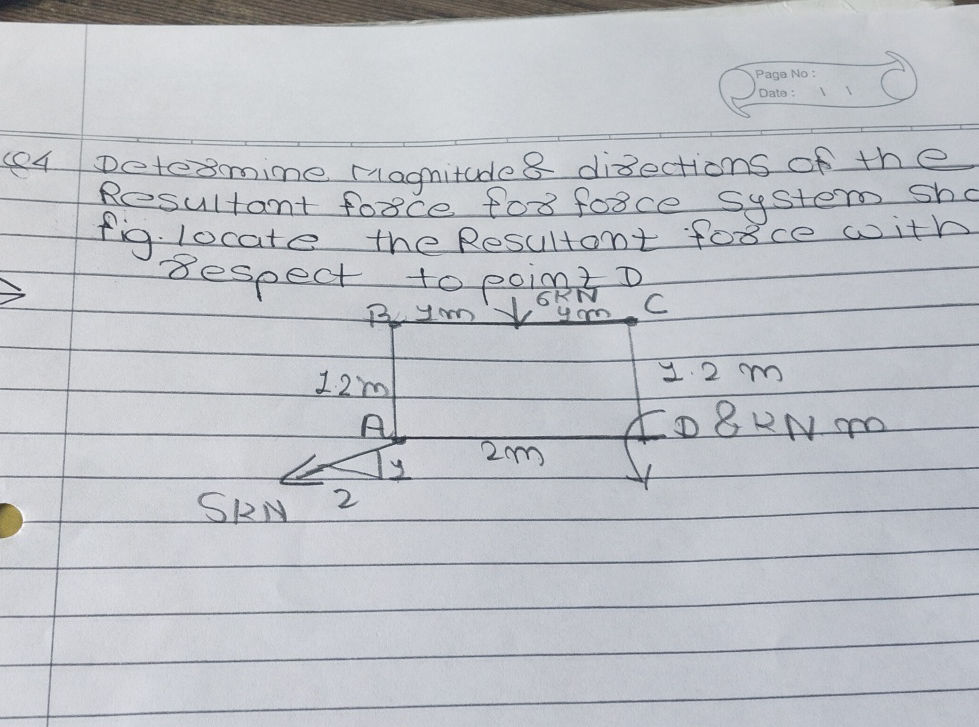 Page No :
Date : \ \
Q4 Determine Magnitude & directions of the
Resultant force for force system sho
fig. locate the Resultant force with
respect to point D
B 1m 6KN 1m C
1.2m 1.2 m
A 2m D 8 KN m
1
2
5KN